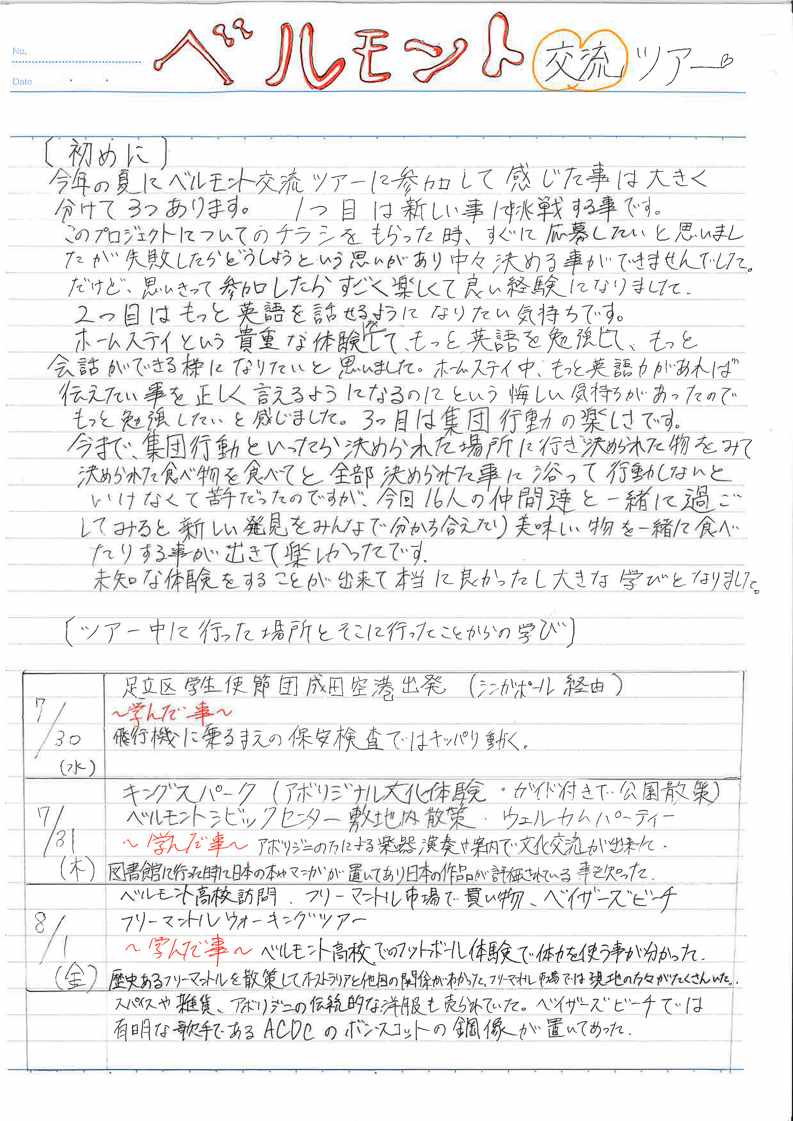 No.
Date
ベルモント 交流 ツアー
〔初めに〕
今年の夏にベルモント交流ツアーに参加して感じた事は大きく
分けて3つあります。 1つ目は新しい事に挑戦する事です。
このプロジェクトについてのチラシをもらった時、すぐに応募したいと思いまし
たが失敗したらどうしようという思いがあり中々決める事ができませんでした。
だけど、思いきって参加したらすごく楽しくて良い経験になりました.
2つ目はもっと英語を話せるようになりたい気持ちです。
ホームステイという貴重な体験をして、もっと英語を勉強して、もっと
会話ができる様になりたいと思いました。ホームステイ中、もっと英語力があれば
伝えたい事を正しく言えるようになるのにという悔しい気持ちがあったので
もっと勉強したいと感じました。3つ目は集団行動の楽しさです。
今まで、集団行動といったら決められた場所に行き決められた物をみて
決められた食べ物を食べてと全部決められた事に沿って行動しないと
いけなくて苦手だったのですが、今回16人の仲間達と一緒に過ご
してみると新しい発見をみんなで分かち合えたり美味しい物を一緒に食べ
たりする事が出きて楽しかったです.
未知な体験をすることが出来て本当に良かったし大きな学びとなりました。
〔ツアー中に行った場所とそこに行ったことからの学び〕
7/30(水)
足立区学生使節団成田空港出発 (シンガポール経由)
～学んだ事～
飛行機に乗るまえの保安検査ではキッパリ動く。
7/31(木)
キングスパーク (アボリジナル文化体験・ガイド付きで公園散策)
ベルモントシビックセンター敷地内散策・ウェルカムパーティー
～学んだ事～ アボリジニの方による楽器演奏や案内で文化交流が出来た.
図書館に行った時に日本の本やマンガが置いてあり日本の作品が評価されている事を知った.
8/1(金)
ベルモント高校訪問. フリーマントル市場で買い物、ベイザーズビーチ
フリーマントルウォーキングツアー
～学んだ事～ ベルモント高校でのフットボール体験で体力を使う事が分かった.
歴史あるフリーマントルを散策してオーストラリアと他国の関係がわかった.フリーマントル市場では現地の方々がたくさんいた.
スパイスや雑貨、アボリジニの伝統的な洋服も売られていた。ベイザーズビーチでは
有名な歌手であるACDCのボンスコットの銅像が置いてあった.